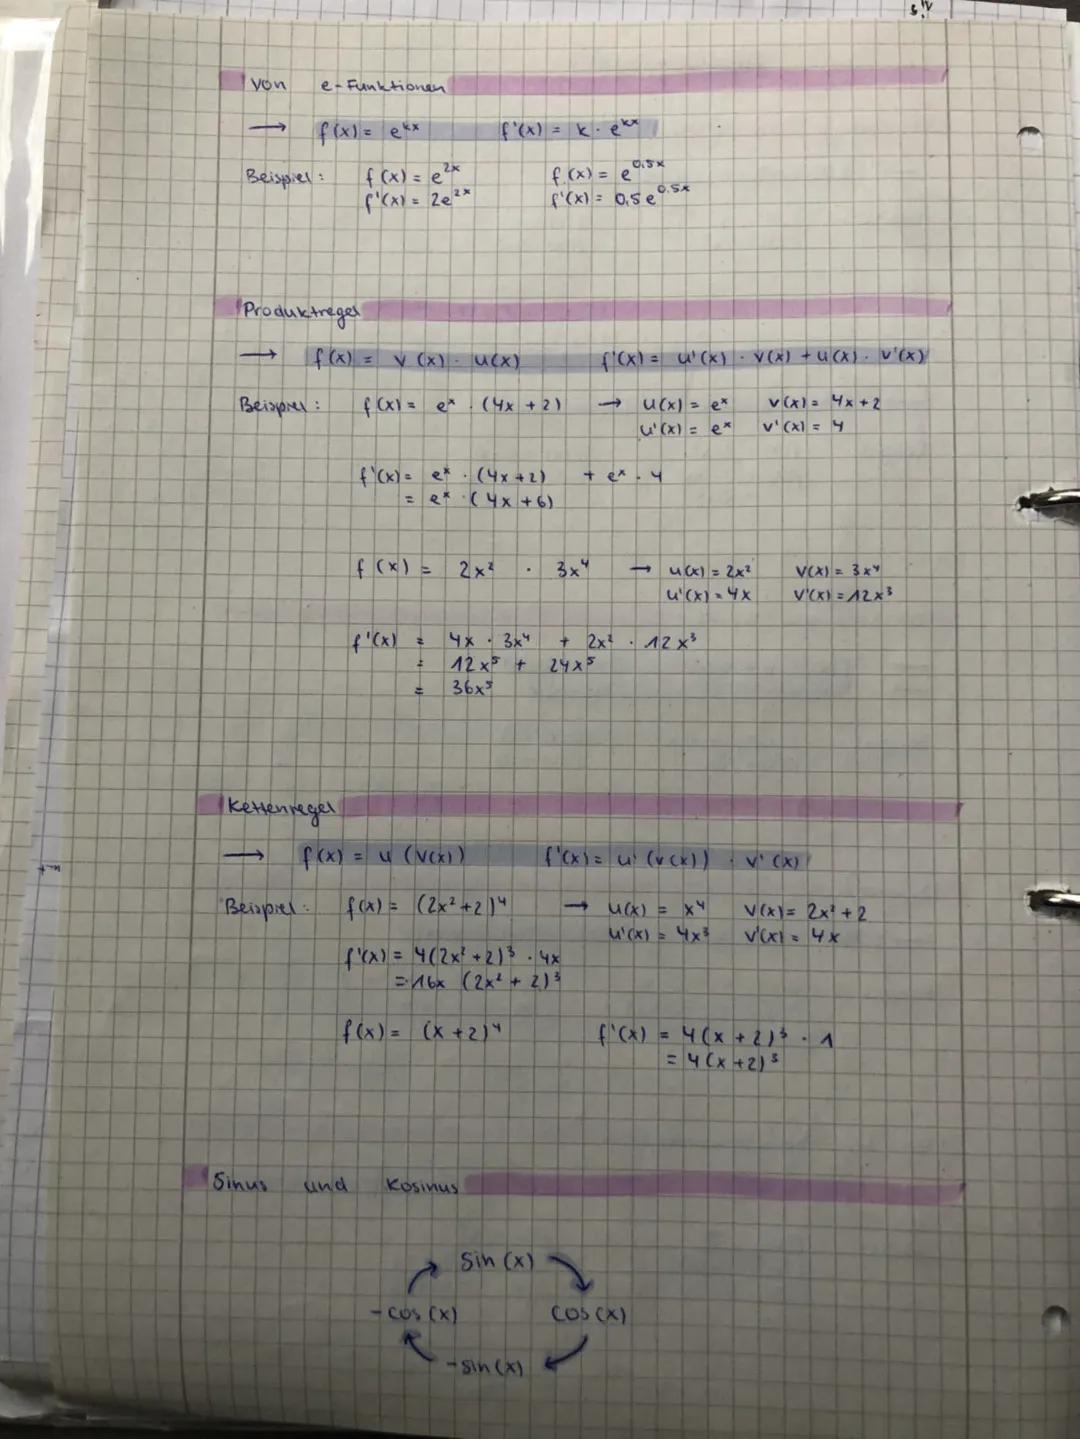 von e-Funktionen
→ f(x) = e^kx f'(x) = k · e^kx
Beispiel: f(x) = e^2x f(x) = e^0,5x
f'(x) = 2e^2x f'(x) = 0,5e^0,5x
Produktregel
→ f(x) = v(x) · u(x) f'(x) = u'(x) · v(x) + u(x) · v'(x)
Beispiel: f(x) = e^x · (4x + 2) → u(x) = e^x v(x) = 4x + 2
u'(x) = e^x v'(x) = 4
f'(x) = e^x · (4x + 2) + e^x · 4
= e^x · (4x + 6)
f(x) = 2x² · 3x⁴ → u(x) = 2x² v(x) = 3x⁴
u'(x) = 4x v'(x) = 12x³
f'(x) = 4x · 3x⁴ + 2x² · 12x³
= 12x⁵ + 24x⁵
= 36x⁵
Kettenregel
→ f(x) = u(v(x)) f'(x) = u'(v(x)) · v'(x)
Beispiel: f(x) = (2x² + 2)⁴ → u(x) = x⁴ v(x) = 2x² + 2
u'(x) = 4x³ v'(x) = 4x
f'(x) = 4(2x² + 2)³ · 4x
= 16x (2x² + 2)³
f(x) = (x + 2)⁴ f'(x) = 4(x + 2)³ · 1
= 4(x + 2)³
Sinus und Kosinus
sin(x)
-cos(x) cos(x)
-sin(x)